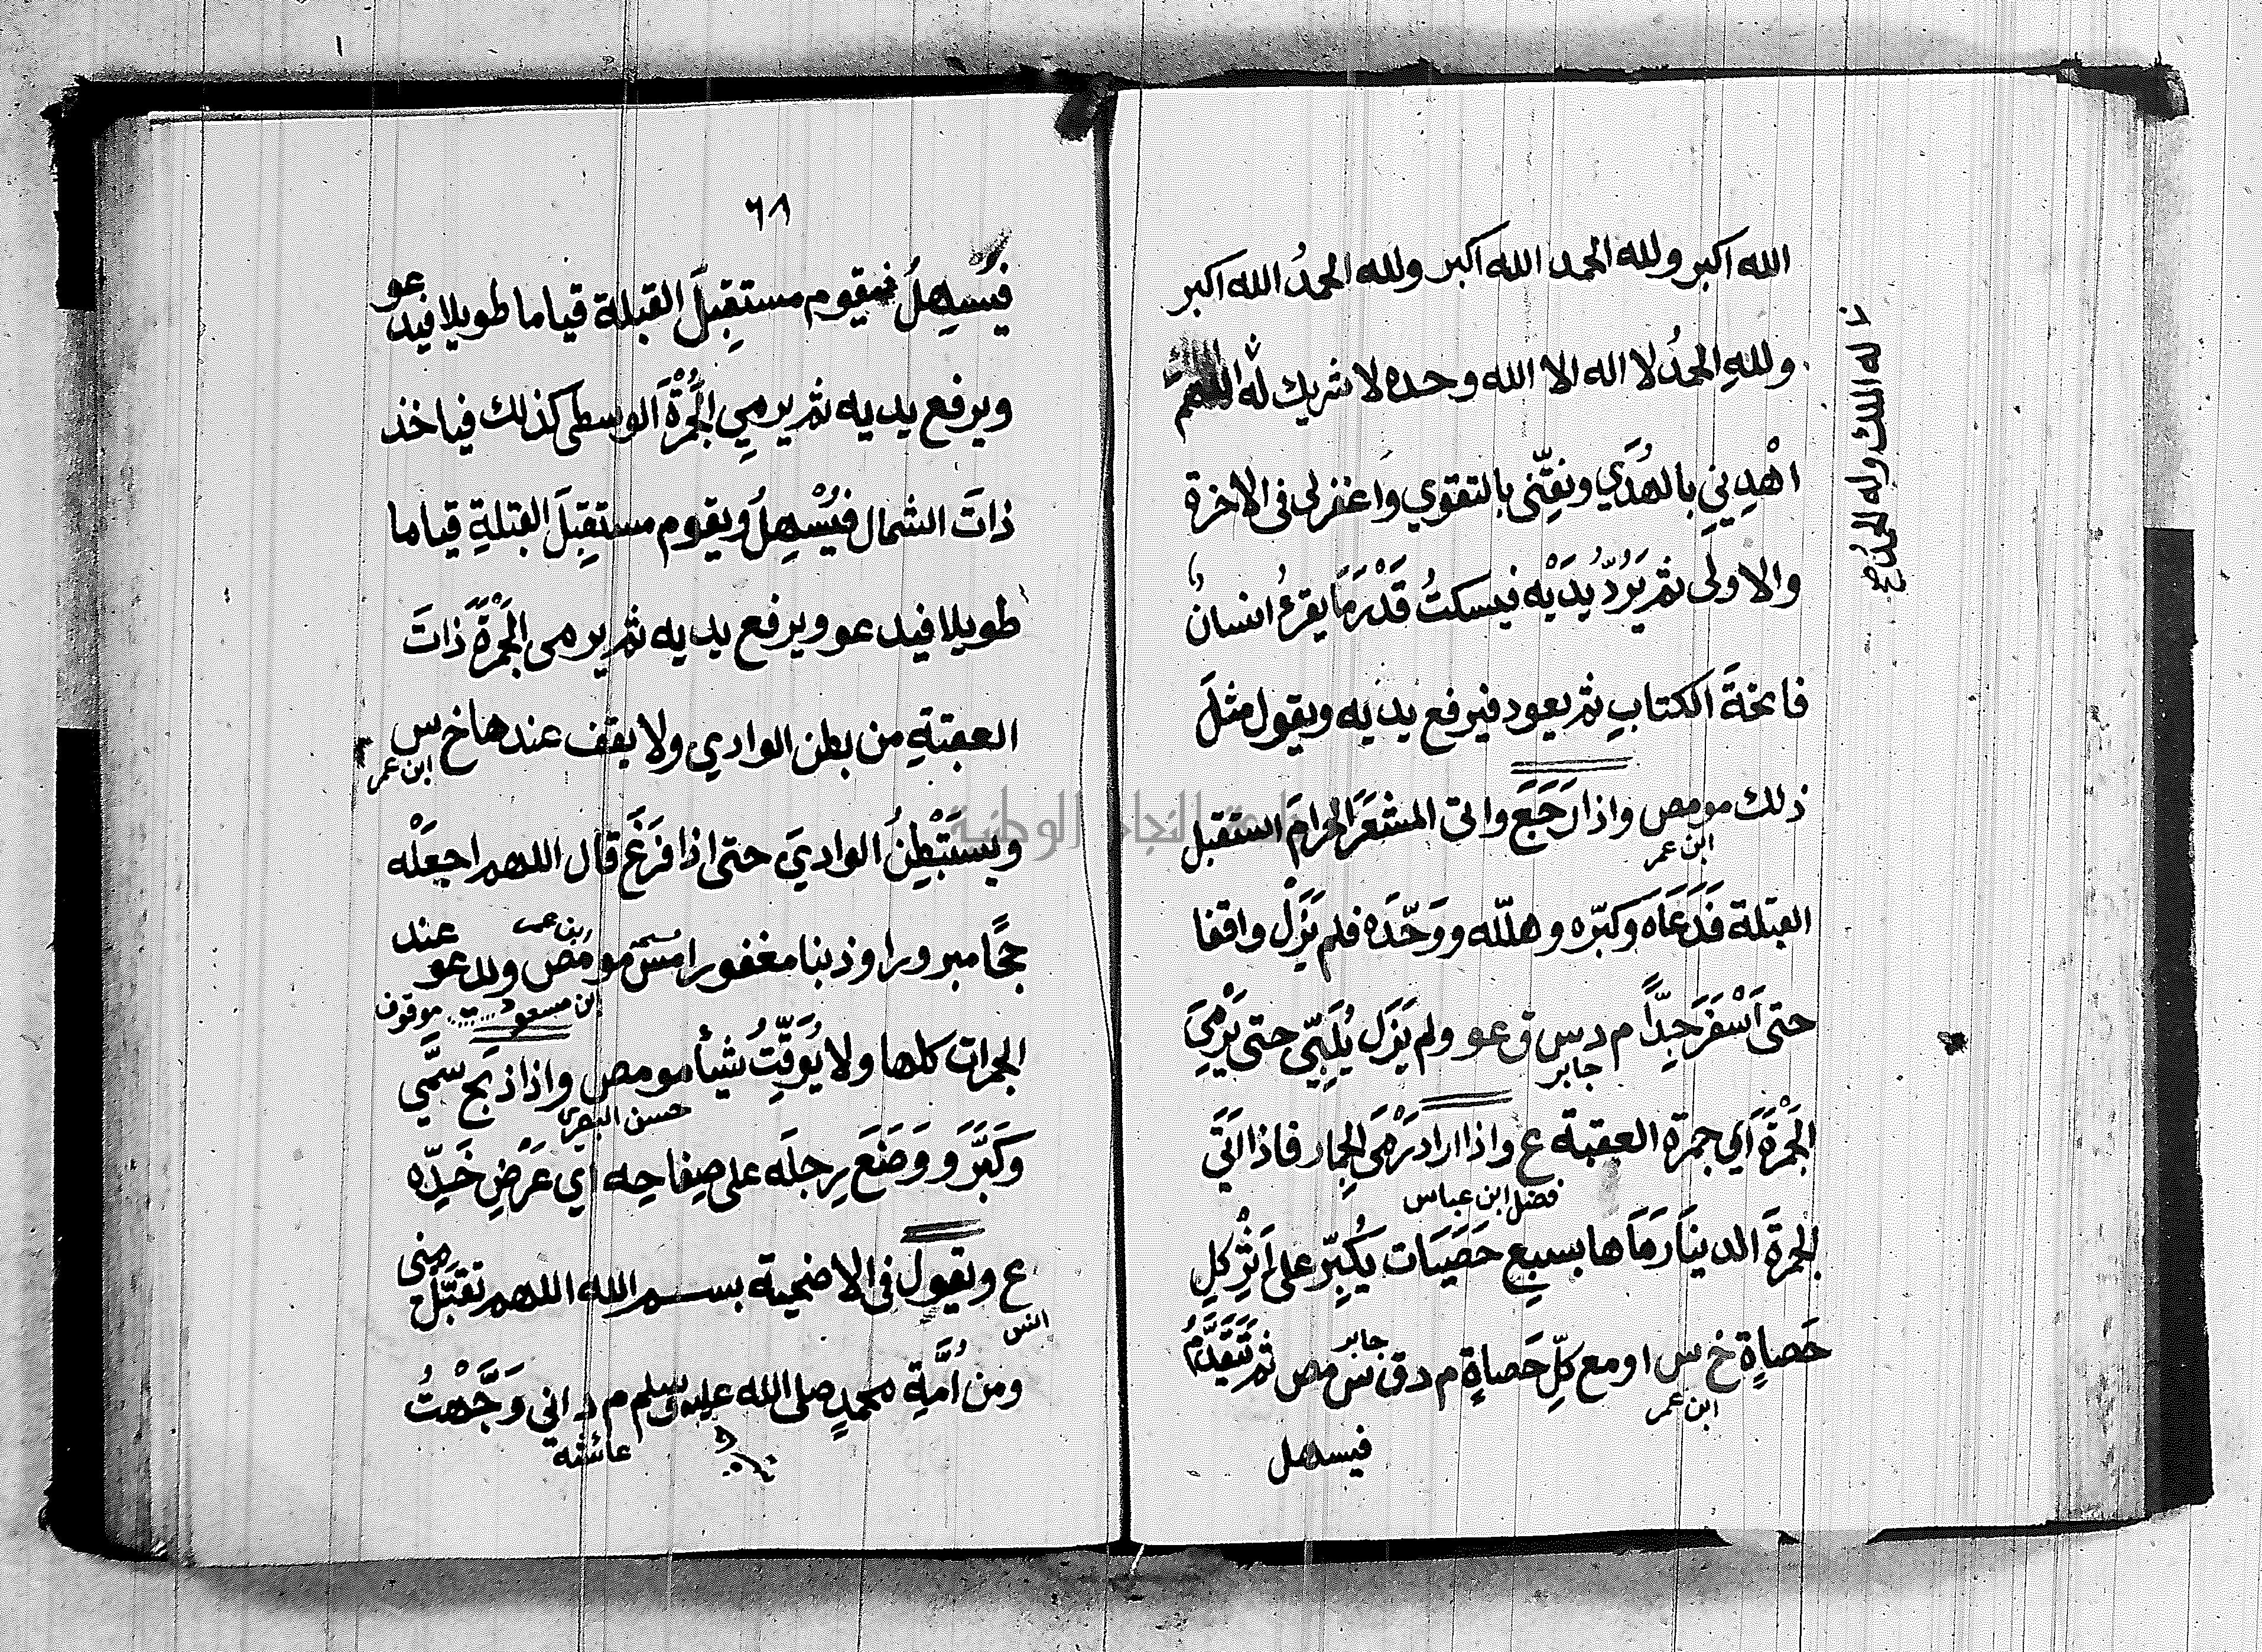 الله اكبر ولله الحمد الله اكبر ولله الحمدُ الله اكبر
وللهِ الحمدُ لا اله الا الله وحده لا شريك له اللهم
له الملك وله الحمدُ صح
اهْدِنِي بالهُدَي ونقِّنى بالتقوي واغفرلى فى الاخرة
والاولَى ثم يَرُدّ يُدَيْه فيسكتُ قَدْرَ مَا يقرءُ انسانٌ
فاتحةَ الكتابِ ثم يعود فيرفع يديه ويقول مثلَ
ذلك مو مص واذا رَجَعَ واتى المشعَرَ الحرامَ استقبل
ابن عمر
القبلة فَدَعَاه وَكبّره وهلّله ووَحّدَه فلم يَزَلْ واقفا
حتى اَسْفَرَ جِدّاً م د س ق عو ولم يَزَل يُلَبِّي حتى يَرْمِيَ
جابر
الجَمْرَةَ اَي جمرة العقبة ع واذا اراد رَمْيَ الجِمار فاذا اتَى
فضل ابن عباس
الجمرةَ الدنيَا رَمَاها بسبعِ حَصَيَات يُكَبِّر على اَثْرِ كلِ
حَصاةٍ خ س او مع كلِّ حَصاةٍ م د ق س مص ثم يَتَقَدَّمُ
جابر
ابن عمر
فيسهل
٦٨
فيُسْهِلُ فيقوم مستقِبلَ القبلة قياما طويلا فيدعو
ويرفع يديه ثم يرمِي الجَمْرَةَ الوسطى كذلك فياخذ
ذاتَ الشمال فيُسْهِلُ ويقوم مستقِبلَ القبلةِ قياما
طويلا فيدعو ويرفع يديه ثم يرمى الجَمْرَةَ ذاتَ
العقبةِ من بطن الوادي ولا يقف عندها خ س
ابن عمر
ويستَبْطِنُ الواديَ حتى اذا فَرَغَ قال اللهم اجعَلْه
حَجًّا مبرورا وذنبا مغفورا مص مو مص ويدعو عند
ابن مسعود موقوف
الجمرات كلها ولا يُوَقِّتُ شيأ مو مص واذا ذبَح سَمَّي
حسن البصري
وَكَبَّرَ وَوَضَعَ رِجلَه على صِفاحِه اي عَرْضِ خَدِّه
ع ويقول فى الاضحية بسم الله اللهم تقبَّلْ مِنى
انس
ومن اُمَّةِ محمدٍ صلى الله عليه وسلم م د انى وَجَّهْتُ
عائشة